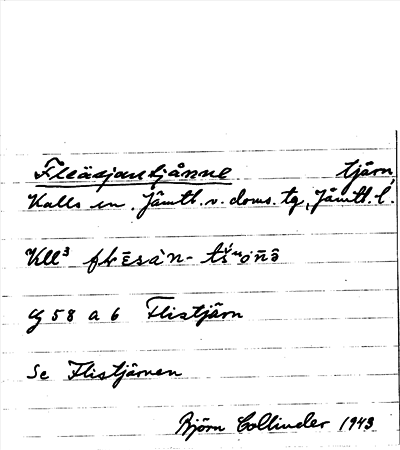 Fleäsjantjånne tjärn,
Kalls sn. Jämtl. v. doms. tg, Jämtl. l.
Kll³
G 58 a 6 Flistjärn
Se Flistjärnen
Björn Collinder 1943